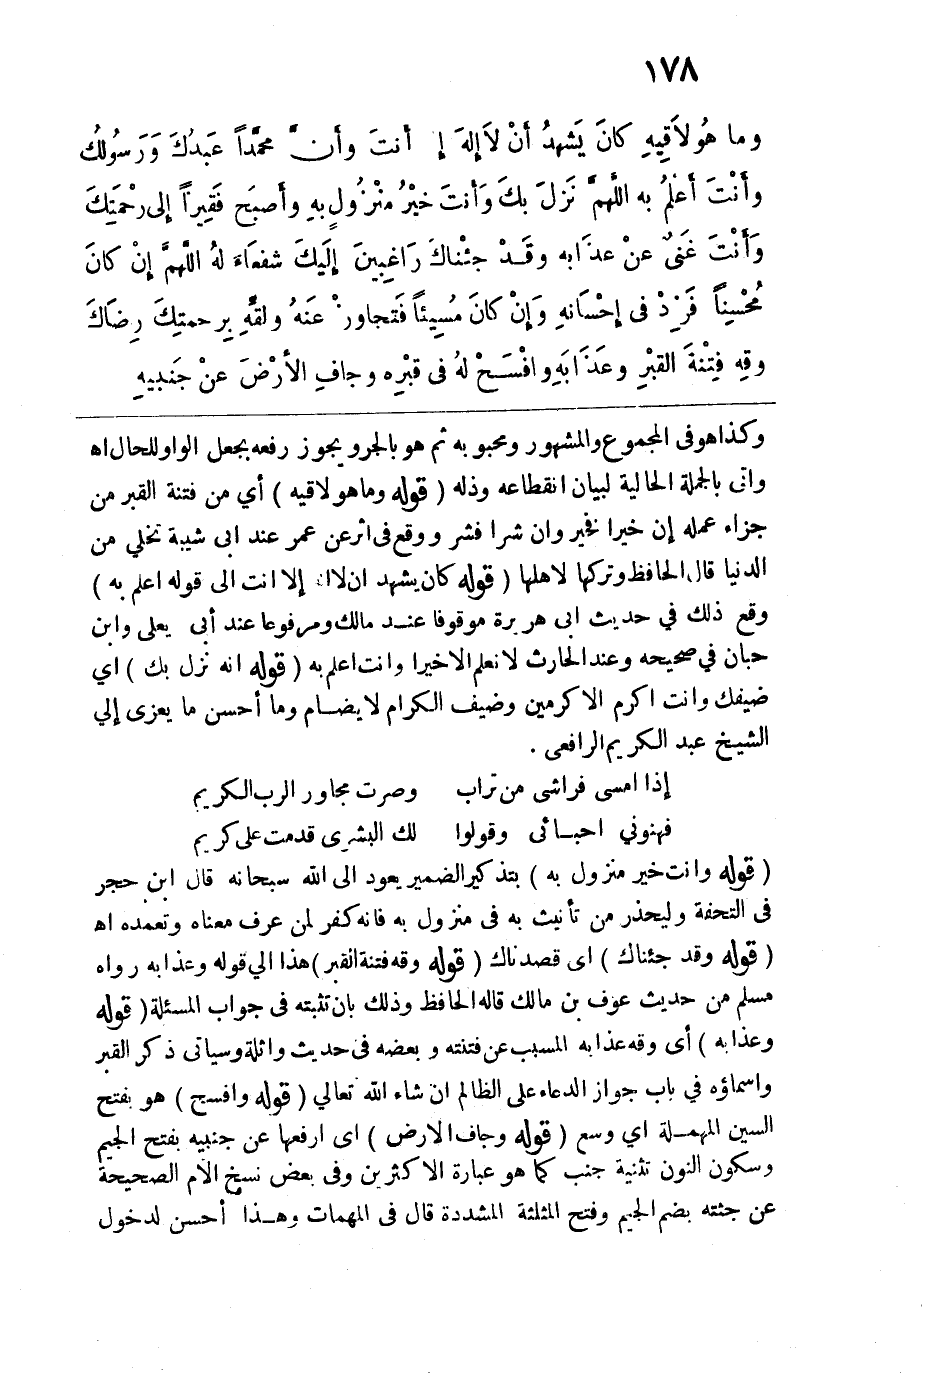 ١٧٨
وما هُو لاَقِيهِ كانَ يَشهدُ أنْ لاَإلهَ إ أنتَ وأنَّ محمَّداً عَبدُكَ وَرَسُولكُ
وأنْتَ أعْلمُ به اللَّهمَّ نَزلَ بكَ وَأنتَ خيْرُ منْزُولٍ بهِ وأصبَح فَقِيراً إلى رحْمَتِكَ
وَأنْتَ غَنىٌّ عنْ عذَابه وقَـدْ جئْناكَ رَاغِبِينَ إلَيكَ شفعَاءَ لهُ اللَّهمَّ إنْ كانَ
مُحْسِناً فَزِدْ فى إحْسَانهِ وَإنْ كانَ مُسِيئاً فَتجاوزْ عنَهُ ولقهِّ برحمتِكَ رِضَاكَ
وقِهِ فِتْنةَ القبْرِ وعَذَابَهِ وافْسَـحْ لهُ فى قبْرِه وجافِ الأرْضَ عنْ جَنبيهِ
وكذاهوفى المجموع والمشهور ومحبوبه ثم هو بالجر ويجوز رفعه بجعل الواو للحال اه
واتى بالجملة الحالية لبيان انقطاعه وذله ( قوله وماهو لاقيه ) أي من فتنة القبر من
جزاء عمله إن خيرا فخير وان شرا فشر ووقع فى اثر عن عمر عند ابى شيبة تخلي من
الدنيا قال الحافظ وتركها لاهلها ( قوله كان يشهد ان لاا إلا انت الى قوله اعلم به )
وقع ذلك في حديث ابى هريرة موقوفا عنـد مالك ومرفوعا عند أبى يعلى وابن
حبان في صحيحه وعند الحارث لا نعلم الاخيرا وانت اعلم به ( قوله انه نزل بك ) اي
ضيفك وانت اكرم الاكرمين وضيف الكرام لايضـام وما أحسن ما يعزى إلي
الشيخ عبد الكريم الرافعى .
إذا امسى فراشى من تراب وصرت مجاور الرب الكريم
فهنوني احبـائى وقولوا لك البشرى قدمت على كريم
( قوله وانت خير منزول به ) بتذكير الضمير يعود الى الله سبحانه قال ابن حجر
فى التحفة وليحذر من تأنيث به فى منزول به فانه كفر لمن عرف معناه وتعمده اه
( قوله وقد جئناك ) اى قصدناك ( قوله وقه فتنة القبر ) هذا الي قوله وعذابه رواه
مسلم من حديث عوف بن مالك قاله الحافظ وذلك بان تثبته فى جواب المسئلة ( قوله
وعذابه ) أى وقه عذابه المسبب عن فتنته وبعضه فى حديث واثلة وسياتى ذكر القبر
واسماؤه في باب جواز الدعاء على الظالم ان شاء الله تعالي ( قوله وافسح ) هو بفتح
السين المهمـلة اي وسع ( قوله وجاف الارض ) اى ارفعها عن جنبيه بفتح الجيم
وسكون النون تثنية جنب كما هو عبارة الاكثرين وفى بعض نسخ الأم الصحيحة
عن جثته بضم الجيم وفتح المثلثة المشددة قال فى المهمات وهـذا أحسن لدخول